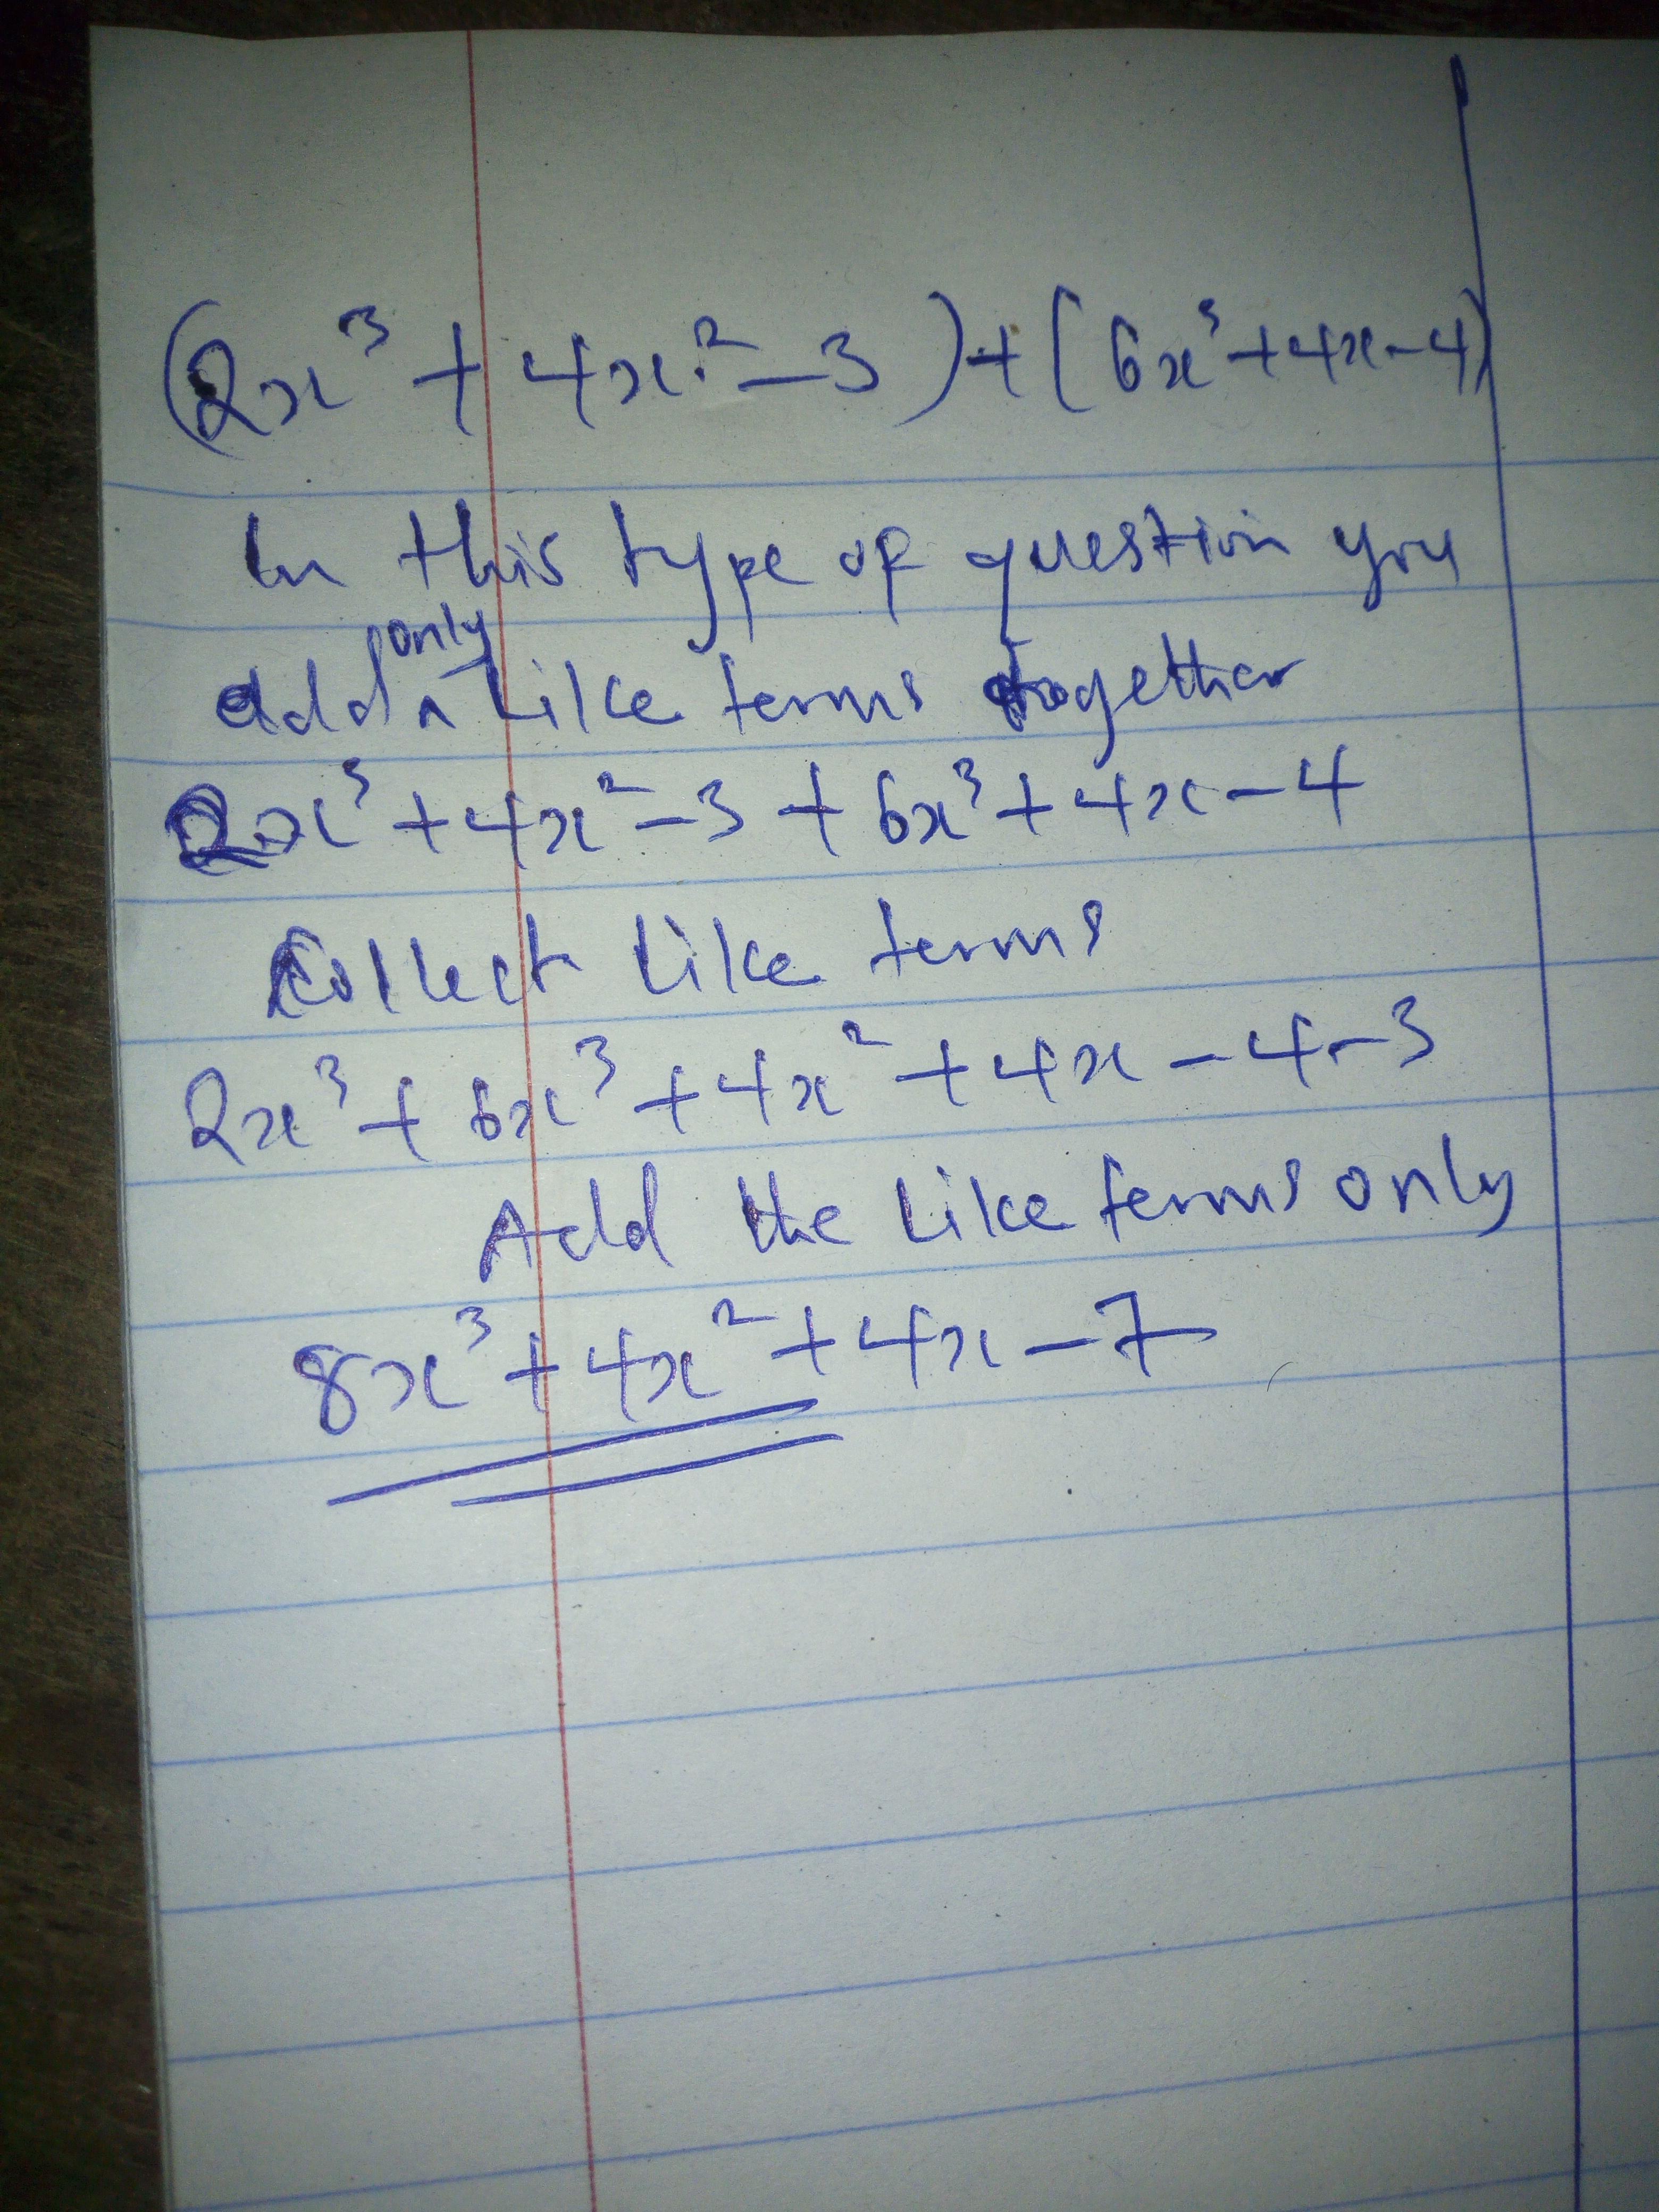 (2x³ + 4x² - 3) + (6x³ + 4x - 4)
In this type of question you
add only like terms together
2x³ + 4x² - 3 + 6x³ + 4x - 4
Collect like terms
2x³ + 6x³ + 4x² + 4x - 4 - 3
Add the like terms only
8x³ + 4x² + 4x - 7